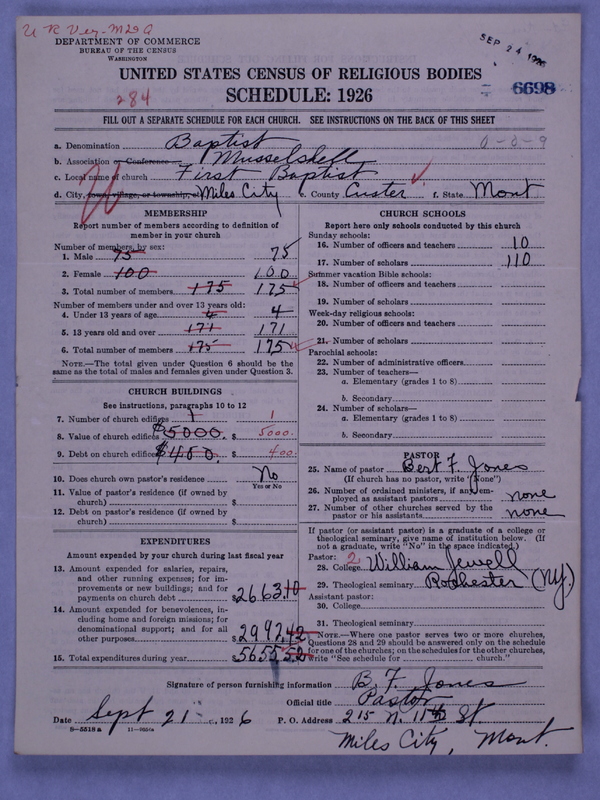 DEPARTMENT OF COMMERCE
BUREAU OF THE CENSUS
WASHINGTON
SEP 24 1926
6698
UNITED STATES CENSUS OF RELIGIOUS BODIES
284
SCHEDULE: 1926
FILL OUT A SEPARATE SCHEDULE FOR EACH CHURCH. SEE INSTRUCTIONS ON THE BACK OF THIS SHEET
a. Denomination Baptist 0-0-9
b. Association or Conference Musselshell
c. Local name of church First Baptist
d. City, town, village, or township, of Miles City e. County Custer f. State Mont
MEMBERSHIP
Report number of members according to definition of
member in your church
Number of members, by sex:
1. Male 75 75
2. Female 100 100
3. Total number of members 175 175
Number of members under and over 13 years old:
4. Under 13 years of age 4 4
5. 13 years old and over 171 171
6. Total number of members 175 175
NOTE.—The total given under Question 6 should be
same as the total of males and females given under Question 3.
CHURCH BUILDINGS
See instructions, paragraphs 10 to 12
7. Number of church edifices 1 1
8. Value of church edifices $5000. $ 5000.
9. Debt on church edifices $400. $ 400.
10. Does church own pastor's residence No
Yes or No
11. Value of pastor's residence (if owned by
church) $
12. Debt on pastor's residence (if owned by
church) $
EXPENDITURES
Amount expended by your church during last fiscal year
13. Amount expended for salaries, repairs,
and other running expenses; for im-
provements or new buildings; and for
payments on church debt $2663.10
14. Amount expended for benevolences, in-
cluding home and foreign missions; for
denominational support; and for all
other purposes $2992.42
15. Total expenditures during year $5655.52
CHURCH SCHOOLS
Report here only schools conducted by this church
Sunday schools:
16. Number of officers and teachers 10
17. Number of scholars 110
Summer vacation Bible schools:
18. Number of officers and teachers
19. Number of scholars
Week-day religious schools:
20. Number of officers and teachers
21. Number of scholars
Parochial schools:
22. Number of administrative officers
23. Number of teachers—
a. Elementary (grades 1 to 8)
b. Secondary
24. Number of scholars—
a. Elementary (grades 1 to 8)
b. Secondary
PASTOR
25. Name of pastor Bert F. Jones
(If church has no pastor, write "None")
26. Number of ordained ministers, if any, em-
ployed as assistant pastors none
27. Number of other churches served by the
pastor or his assistants none
If pastor (or assistant pastor) is a graduate of a college or
theological seminary, give name of institution below. (If
not a graduate, write "No" in the space indicated.)
Pastor: 2
28. College William Jewell
29. Theological seminary Rochester (N.Y.)
Assistant pastor:
30. College
31. Theological seminary
NOTE.—Where one pastor serves two or more churches,
Questions 28 and 29 should be answered only on the schedule
for one of the churches; on the schedules for the other churches,
write "See schedule for church."
Signature of person furnishing information B. F. Jones
Official title Pastor
Date Sept 21, 1926 P. O. Address 215 N. 11th St.
Miles City, Mont.